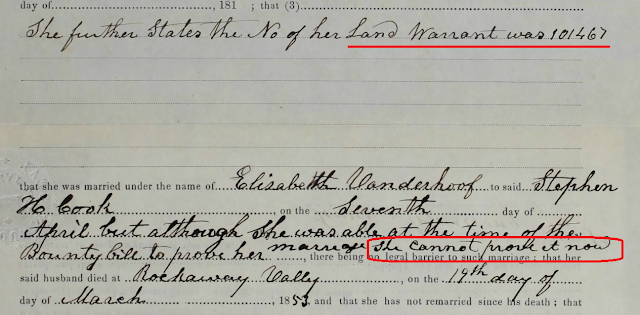 day of ..., 181 ; that (3)
She further States the No of her Land Warrant was 101467
that she was married under the name of Elisabeth Vanderhoof to said Stephen
H Cook on the Seventh day of
April but although she was able at the time of the
Bounty bill to prove her marriage She cannot prove it now
, there being no legal barrier to such marriage ; that her
said husband died at Rockaway Vally, on the 19th day of
day of March 1853, and that she has not remarried since his death ; that